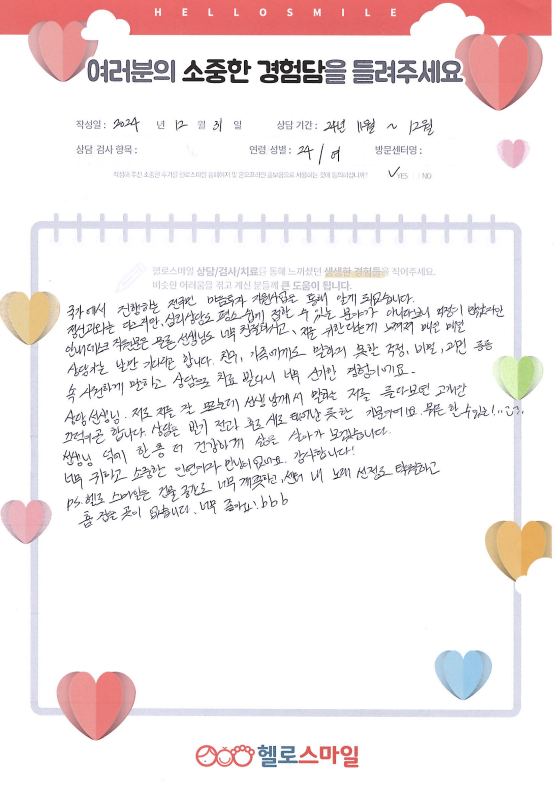 HELLOSMILE
여러분의 소중한 경험담을 들려주세요
작성일 : 2024 년 12 월 31 일 상담 기간 : 24년 11월 ~ 12월
상담 검사 항목 : 연령 성별 : 24 / 여 방문센터명 :
작성해 주신 소중한 후기를 헬로스마일 홈페이지 및 온오프라인 홍보용으로 사용하는 것에 동의하십니까? ✓YES NO
헬로스마일 상담/검사/치료를 통해 느끼셨던 생생한 경험들을 적어주세요.
비슷한 어려움을 겪고 계신 분들께 큰 도움이 됩니다.
국가에서 진행하는 전국민 마음투자 지원사업을 통해 알게 되었습니다.
심리상담은 평소 쉽게 접할 수 있는 분야가 아니다보니 걱정이 많았지만
안내데스크 직원분은 물론 선생님도 너무 친절하시고, 저를 위한다는게 느껴져 매번 매번
상담가는 날만 기다리곤 합니다. 친구, 가족에게도 말하지 못한 걱정, 비밀, 고민 등을
속 시원하게 말하고 상담으로 치료 받다니 너무 신기한 경험이에요.
상담 선생님. 저도 저를 잘 모르는데 선생님께서 말하는 저를 듣다보면 고개만
끄덕이곤 합니다. 상담을 받기 전과 후로 새로 태어난 듯한 기분이에요. 뭐든 할 수 있는!
선생님 덕에 한층 더 건강하게 삶을 살아가 보겠습니다.
너무 귀하고 소중한 인연이라 감사합니다!
PS. 헬로 스마일은 건물 공간도 너무 깨끗하고, 센터 내 노래 선정도 탁월하고
흠 잡을 곳이 없습니다. 너무 좋아요! bbb
헬로스마일